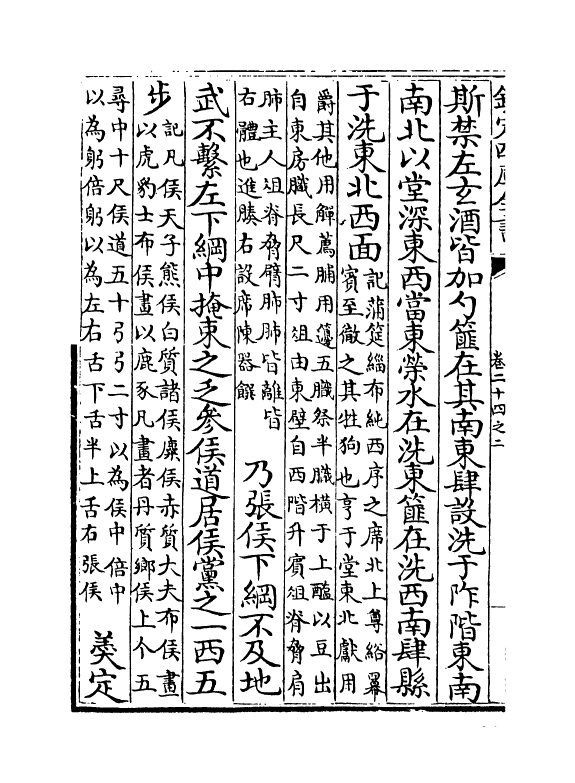 欽定四庫全書
卷二十四之二
斯禁左玄酒皆加勺篚在其南東肆設洗于阼階東南
南北以堂深東西當東榮水在洗東篚在洗西南肆縣
于洗東北西面
記蒲筵緇布純西序之席北上尊綌冪
賓至徹之其牲狗也亨于堂東北獻用
爵其他用觶薦脯用籩五膱祭半膱橫于上醢以豆出
自東房膱長尺二寸俎由東壁自西階升賓俎脊脅肩
肺主人俎脊脅臂肺肺皆離皆
右體也進腠右設席陳器饌
乃張侯下綱不及地
武不繫左下綱中掩束之乏參侯道居侯黨之一西五
步
記凡侯天子熊侯白質諸侯麋侯赤質大夫布侯畫
以虎豹士布侯畫以鹿豕凡畫者丹質鄉侯上个五
尋中十尺侯道五十弓弓二寸以為侯中倍中
以為躬倍躬以為左右舌下舌半上舌右張侯
羹定